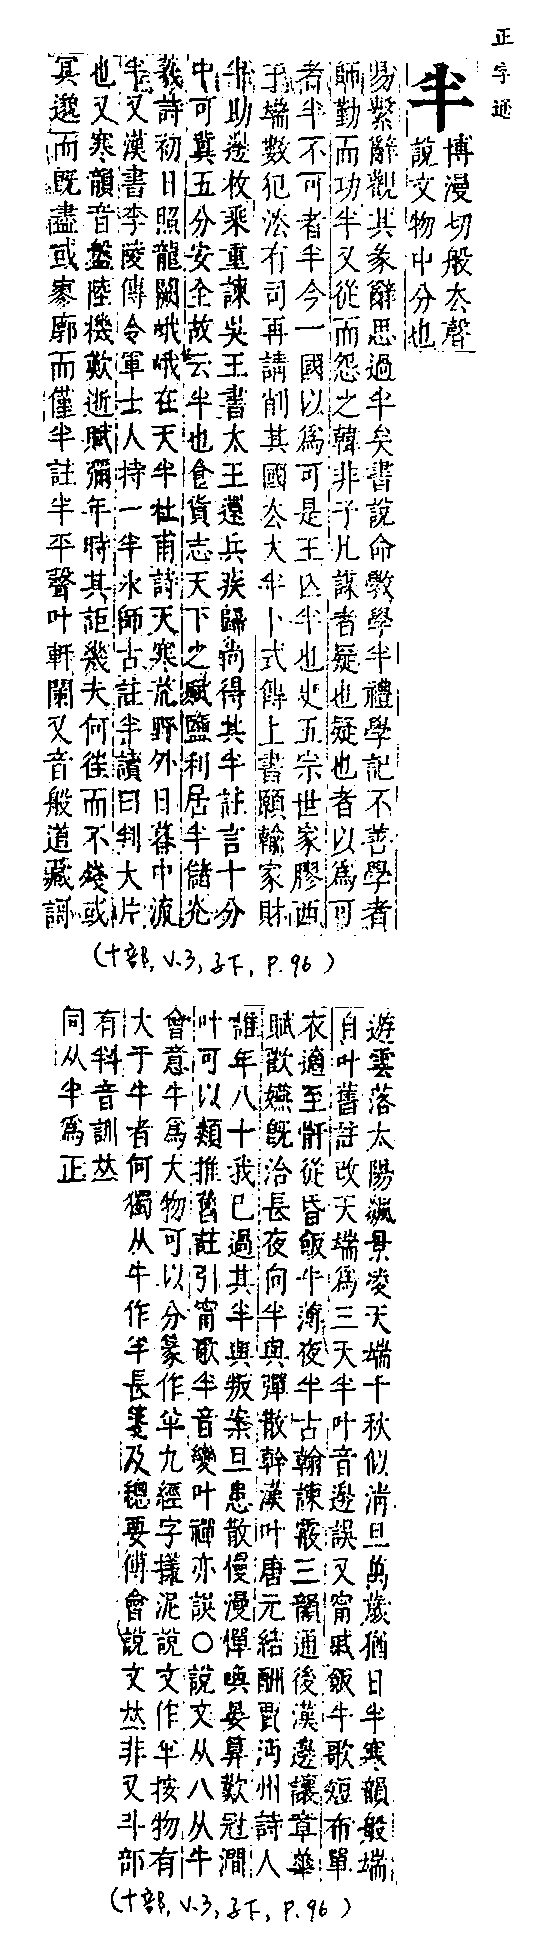 正字通
半
博漫切般去聲
說文物中分也
易繫辭觀其彖辭思過半矣書說命斆學半禮學記不善學者
師勤而功半又從而怨之韓非子凡謀者疑也疑也者以爲可
者半不可者半今一國以爲可是王亡半也史五宗世家膠西
于端數犯法有司再請削其國去大半卜式傳上書願輸家財
半助邊枚乘重諫吳王書大王還兵疾歸尚得其半註言十分
中可冀五分安全故云半也食貨志天下之賦鹽利居半儲光
羲詩初日照龍闕峨峨在天半杜甫詩天寒荒野外日暮中流
半又漢書李陵傳令軍士人持一半冰師古註半讀曰判大片
也又寒韻音盤陸機歎逝賦彌年時其詎幾夫何往而不殘或
冥邈而既盡或寥廓而僅半註半平聲叶軒闌又音般道藏謌
(十部, V.3, 子下, P.96)
遊雲落太陽飇景凌天端千秋似淸旦萬歲猶日半寒韻般端
自叶舊註改天端爲三天半叶音邊誤又甯戚飯牛歌短布單
衣適至骭從昏飯牛薄夜半古翰諫霰三韻通後漢邊讓章華
賦歡嬿旣洽長夜向半與彈散幹漢叶唐元結酬孟沔州詩人
誰年八十我已過其半與叛案旦患散慢漫憚喚晏算歎冠澗
叶可以類推舊註引甯歌半音變叶禪亦誤○說文从八从牛
會意牛爲大物可以分篆作半九經字㨾泥說文作半按物有
大于牛者何獨从牛作半長箋及總要傅會說文𠀤非又斗部
有㪵音訓𠀤
同从半爲正
(十部, V.3, 子下, P.96)